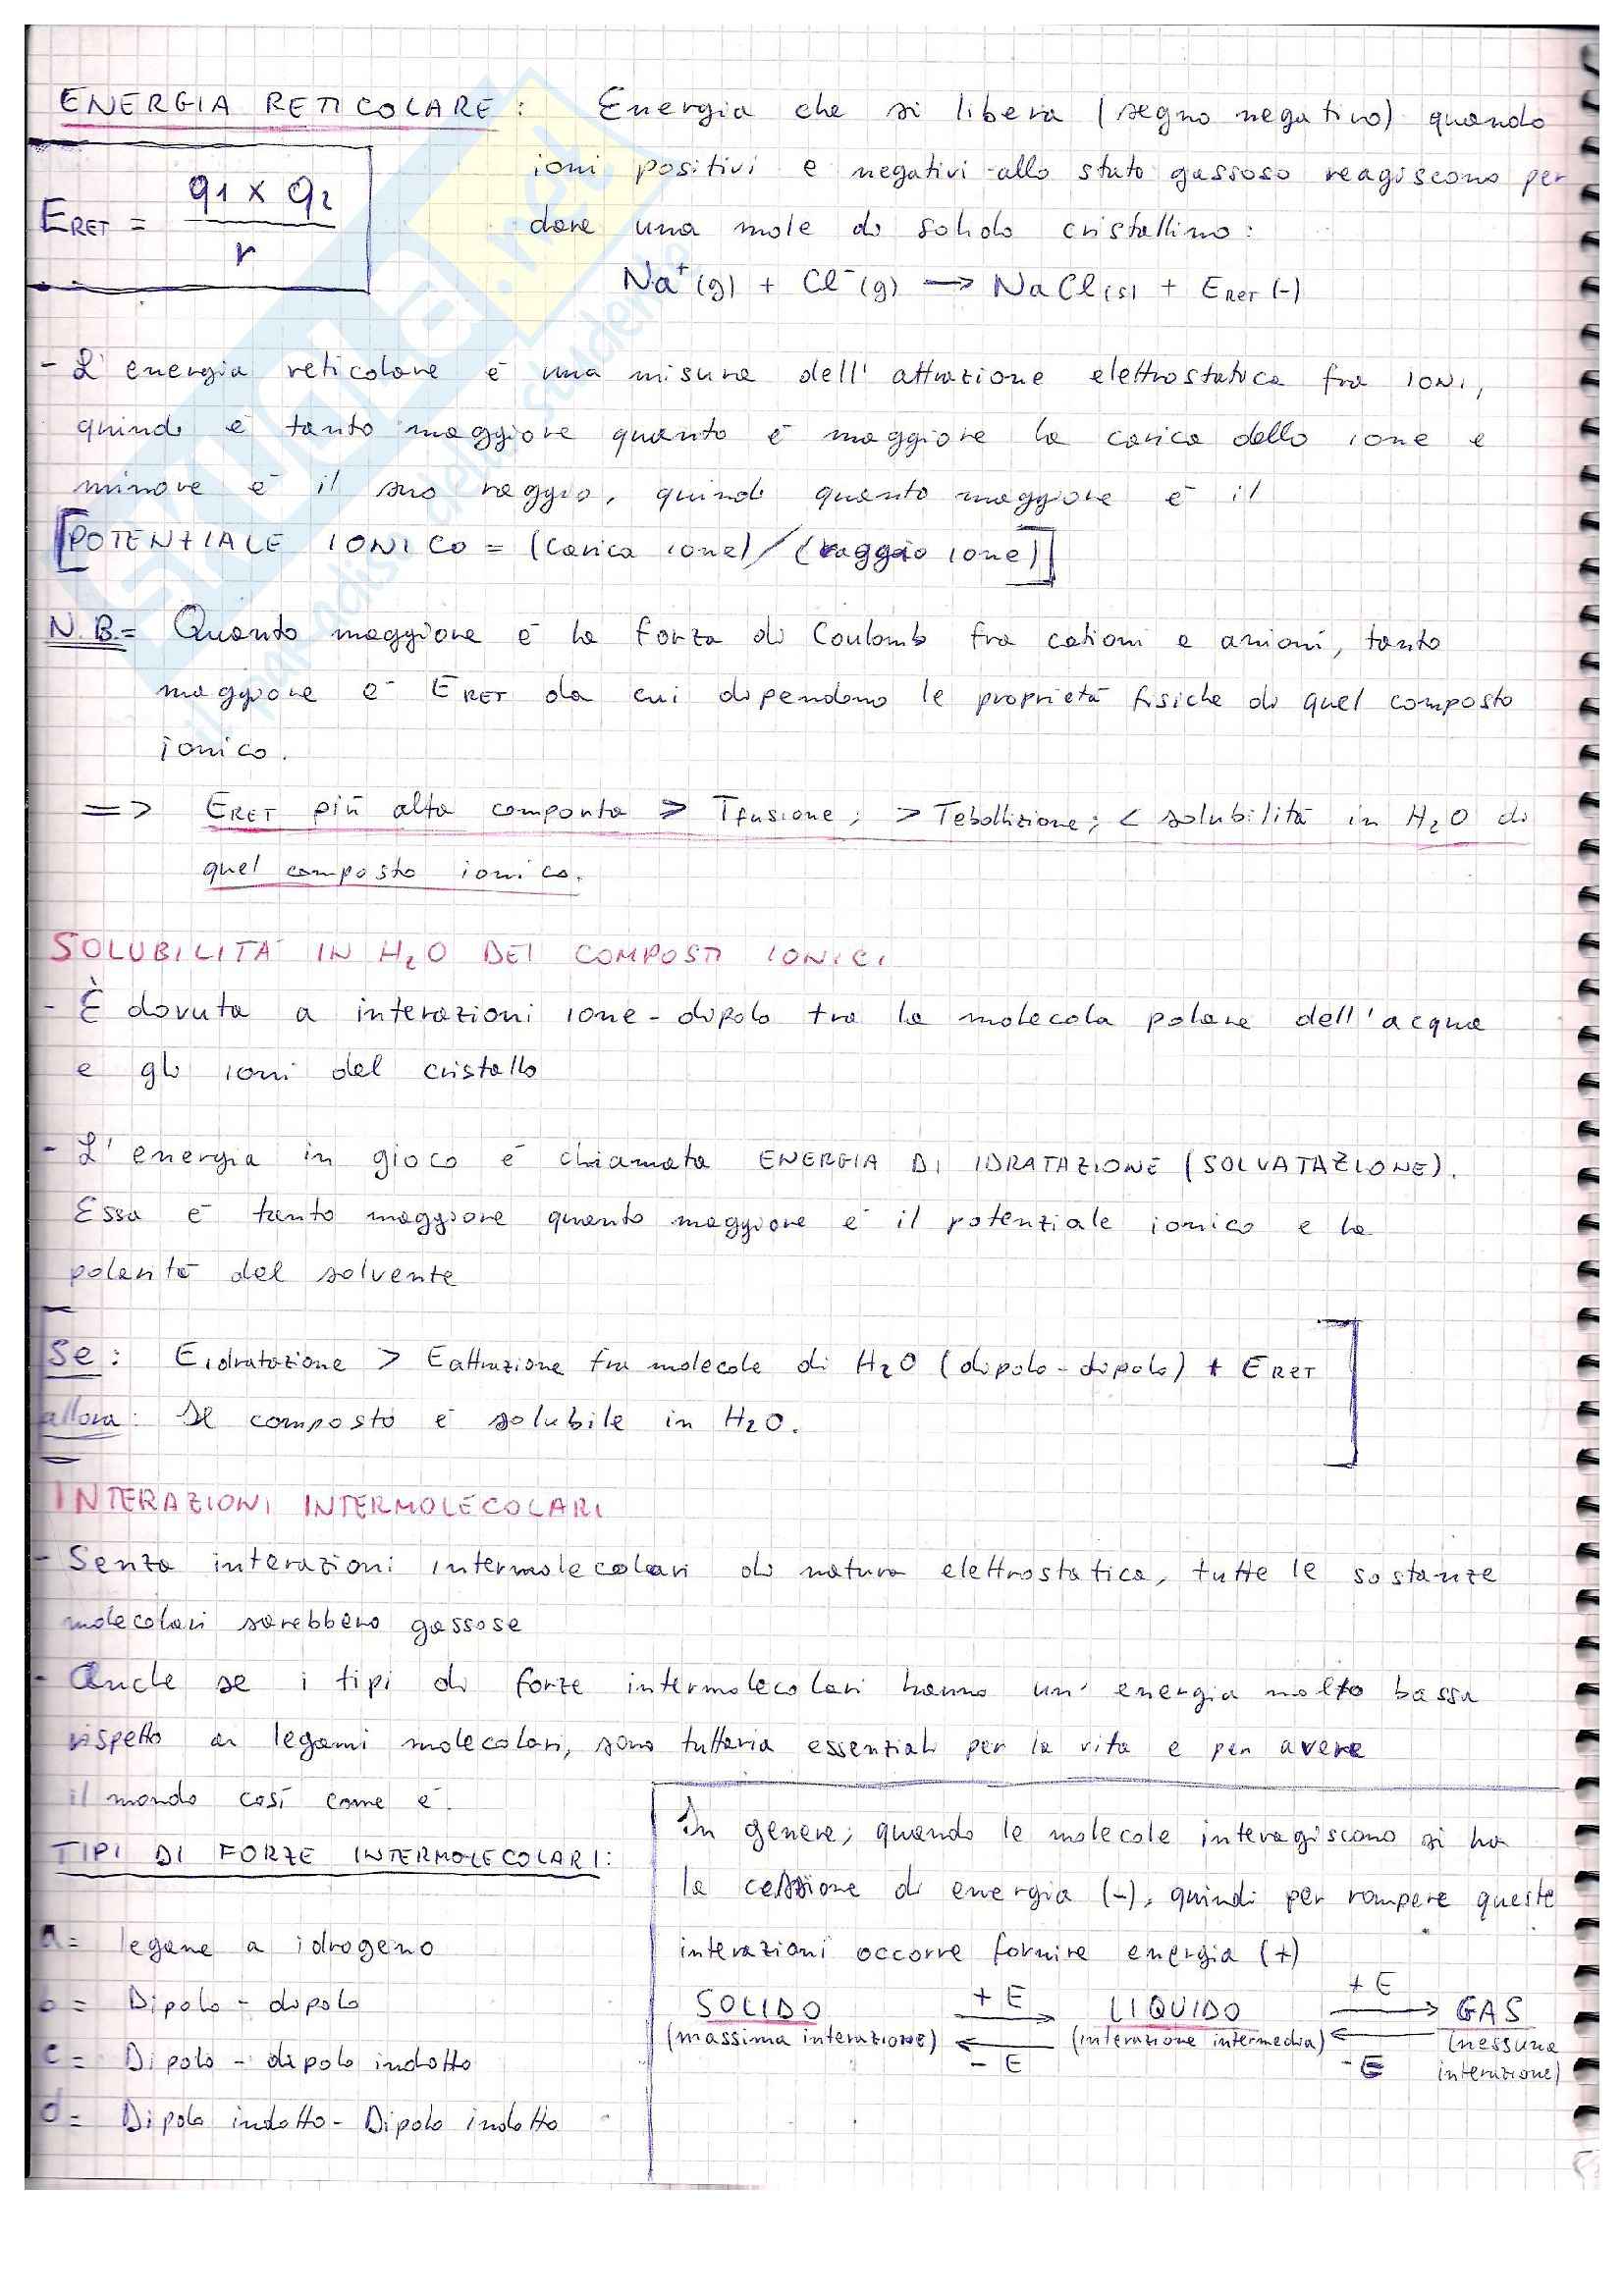 ENERGIA RETICOLARE : Energia che si libera (segno negativo) quando
ioni positivi e negativi allo stato gassoso reagiscono per
dare una mole di solido cristallino:
ERET = q1 x q2 / r
Na+(g) + Cl-(g) → NaCl(s) + ERET (-)
- L'energia reticolare è una misura dell'attrazione elettrostatica fra IONI,
quindi è tanto maggiore quanto è maggiore la carica dello ione e
minore è il suo raggio, quindi quanto maggiore è il
[POTENZIALE IONICO = (carica ione)/(raggio ione)]
N.B.= Quanto maggiore è la forza di Coulomb fra cationi e anioni, tanto
maggiore è ERET da cui dipendono le proprietà fisiche di quel composto
ionico.
=> ERET più alta comporta > Tfusione; > Tebollizione; < solubilità in H2O di
quel composto ionico.
SOLUBILITÀ IN H2O DEI COMPOSTI IONICI
- È dovuta a interazioni ione-dipolo tra la molecola polare dell'acqua
e gli ioni del cristallo
- L'energia in gioco è chiamata ENERGIA DI IDRATAZIONE (SOLVATAZIONE).
Essa è tanto maggiore quanto maggiore è il potenziale ionico e la
polarità del solvente
Se: Eidratazione > Eattrazione fra molecole di H2O (dipolo-dipolo) + ERET
allora: Il composto è solubile in H2O.
INTERAZIONI INTERMOLECOLARI
- Senza interazioni intermolecolari di natura elettrostatica, tutte le sostanze
molecolari sarebbero gassose
- Anche se i tipi di forze intermolecolari hanno un'energia molto bassa
rispetto ai legami molecolari, sono tuttavia essenziali per la vita e per avere
il mondo così come è.
TIPI DI FORZE INTERMOLECOLARI:
a= legame a idrogeno
b= Dipolo - dipolo
c= Dipolo - dipolo indotto
d= Dipolo indotto - Dipolo indotto
In genere, quando le molecole interagiscono si ha
la cessione di energia (-), quindi per rompere queste
interazioni occorre fornire energia (+)
+ E + E
SOLIDO LIQUIDO GAS
(massima interazione) (interazione intermedia) (nessuna
- E - E interazione)